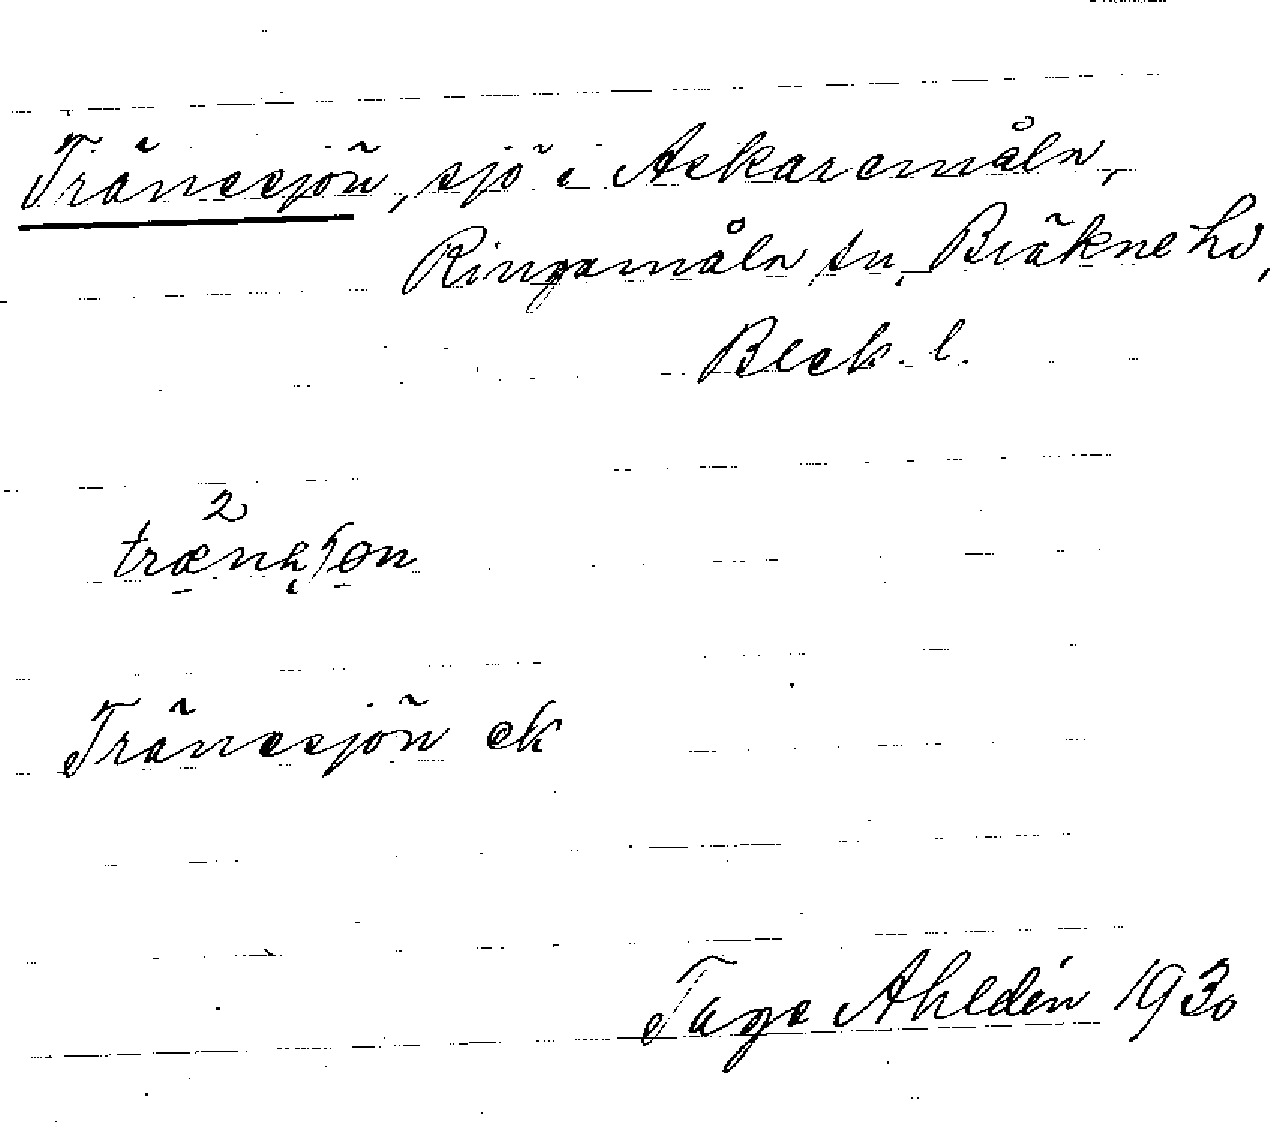 Tränsesjön, sjö i Askaremåla,
Ringamåla sn, Bräkne hd,
Blek. l.
2
trænəʃøn
Tränsesjön ek
Tage Ahldén 1930